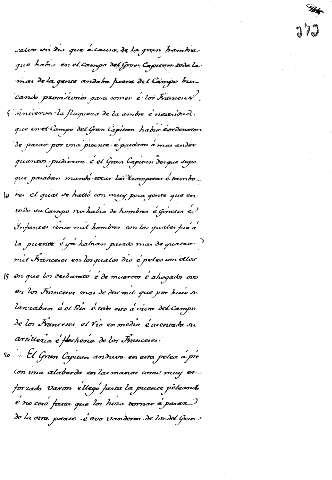 372
salvo un dia que á causa de la gran hambre
que habia en el Campo del Gran Capitan toda la
mas de la gente andaba fuera del Campo bus-
cando provisiones para comer é los Franceses
5 la flaqueza de la ambre é necesidad
que en el Campo del Gran Capitan habia acordaron
de pasar por una puente é pasaron á mas andar
quantos pudieron é el Gran Capitan desque supo
que pasaban mandó tocar las trompetas é atambo-
10 res el qual se halló con muy poca gente que en
todo su Campo no habia de hombres é Ginetes é
Infantes cinco mil hombres con los quales fué á
la puente é ya habian pasado mas de quatro
mil Franceses en los quales dio é peleó con ellos
15 en que los desbarató é de muertos é ahogados ovo
en los Franceses mas de dos mil que por huir se
lanzaban á el Rio é todo esto á vista del Campo
de los Franceses el Rio en medio é asentada su
artilleria é flecheria de los Franceses
20 El Gran Capitan anduvo en esta pelea á pie
con una alabarda en las manos como muy es-
forzado Varon é llegó fasta la puente peleando
é no cesó fasta que los hizo tornar á pasar
de la otra parte é ovo vanderas de las del Gran